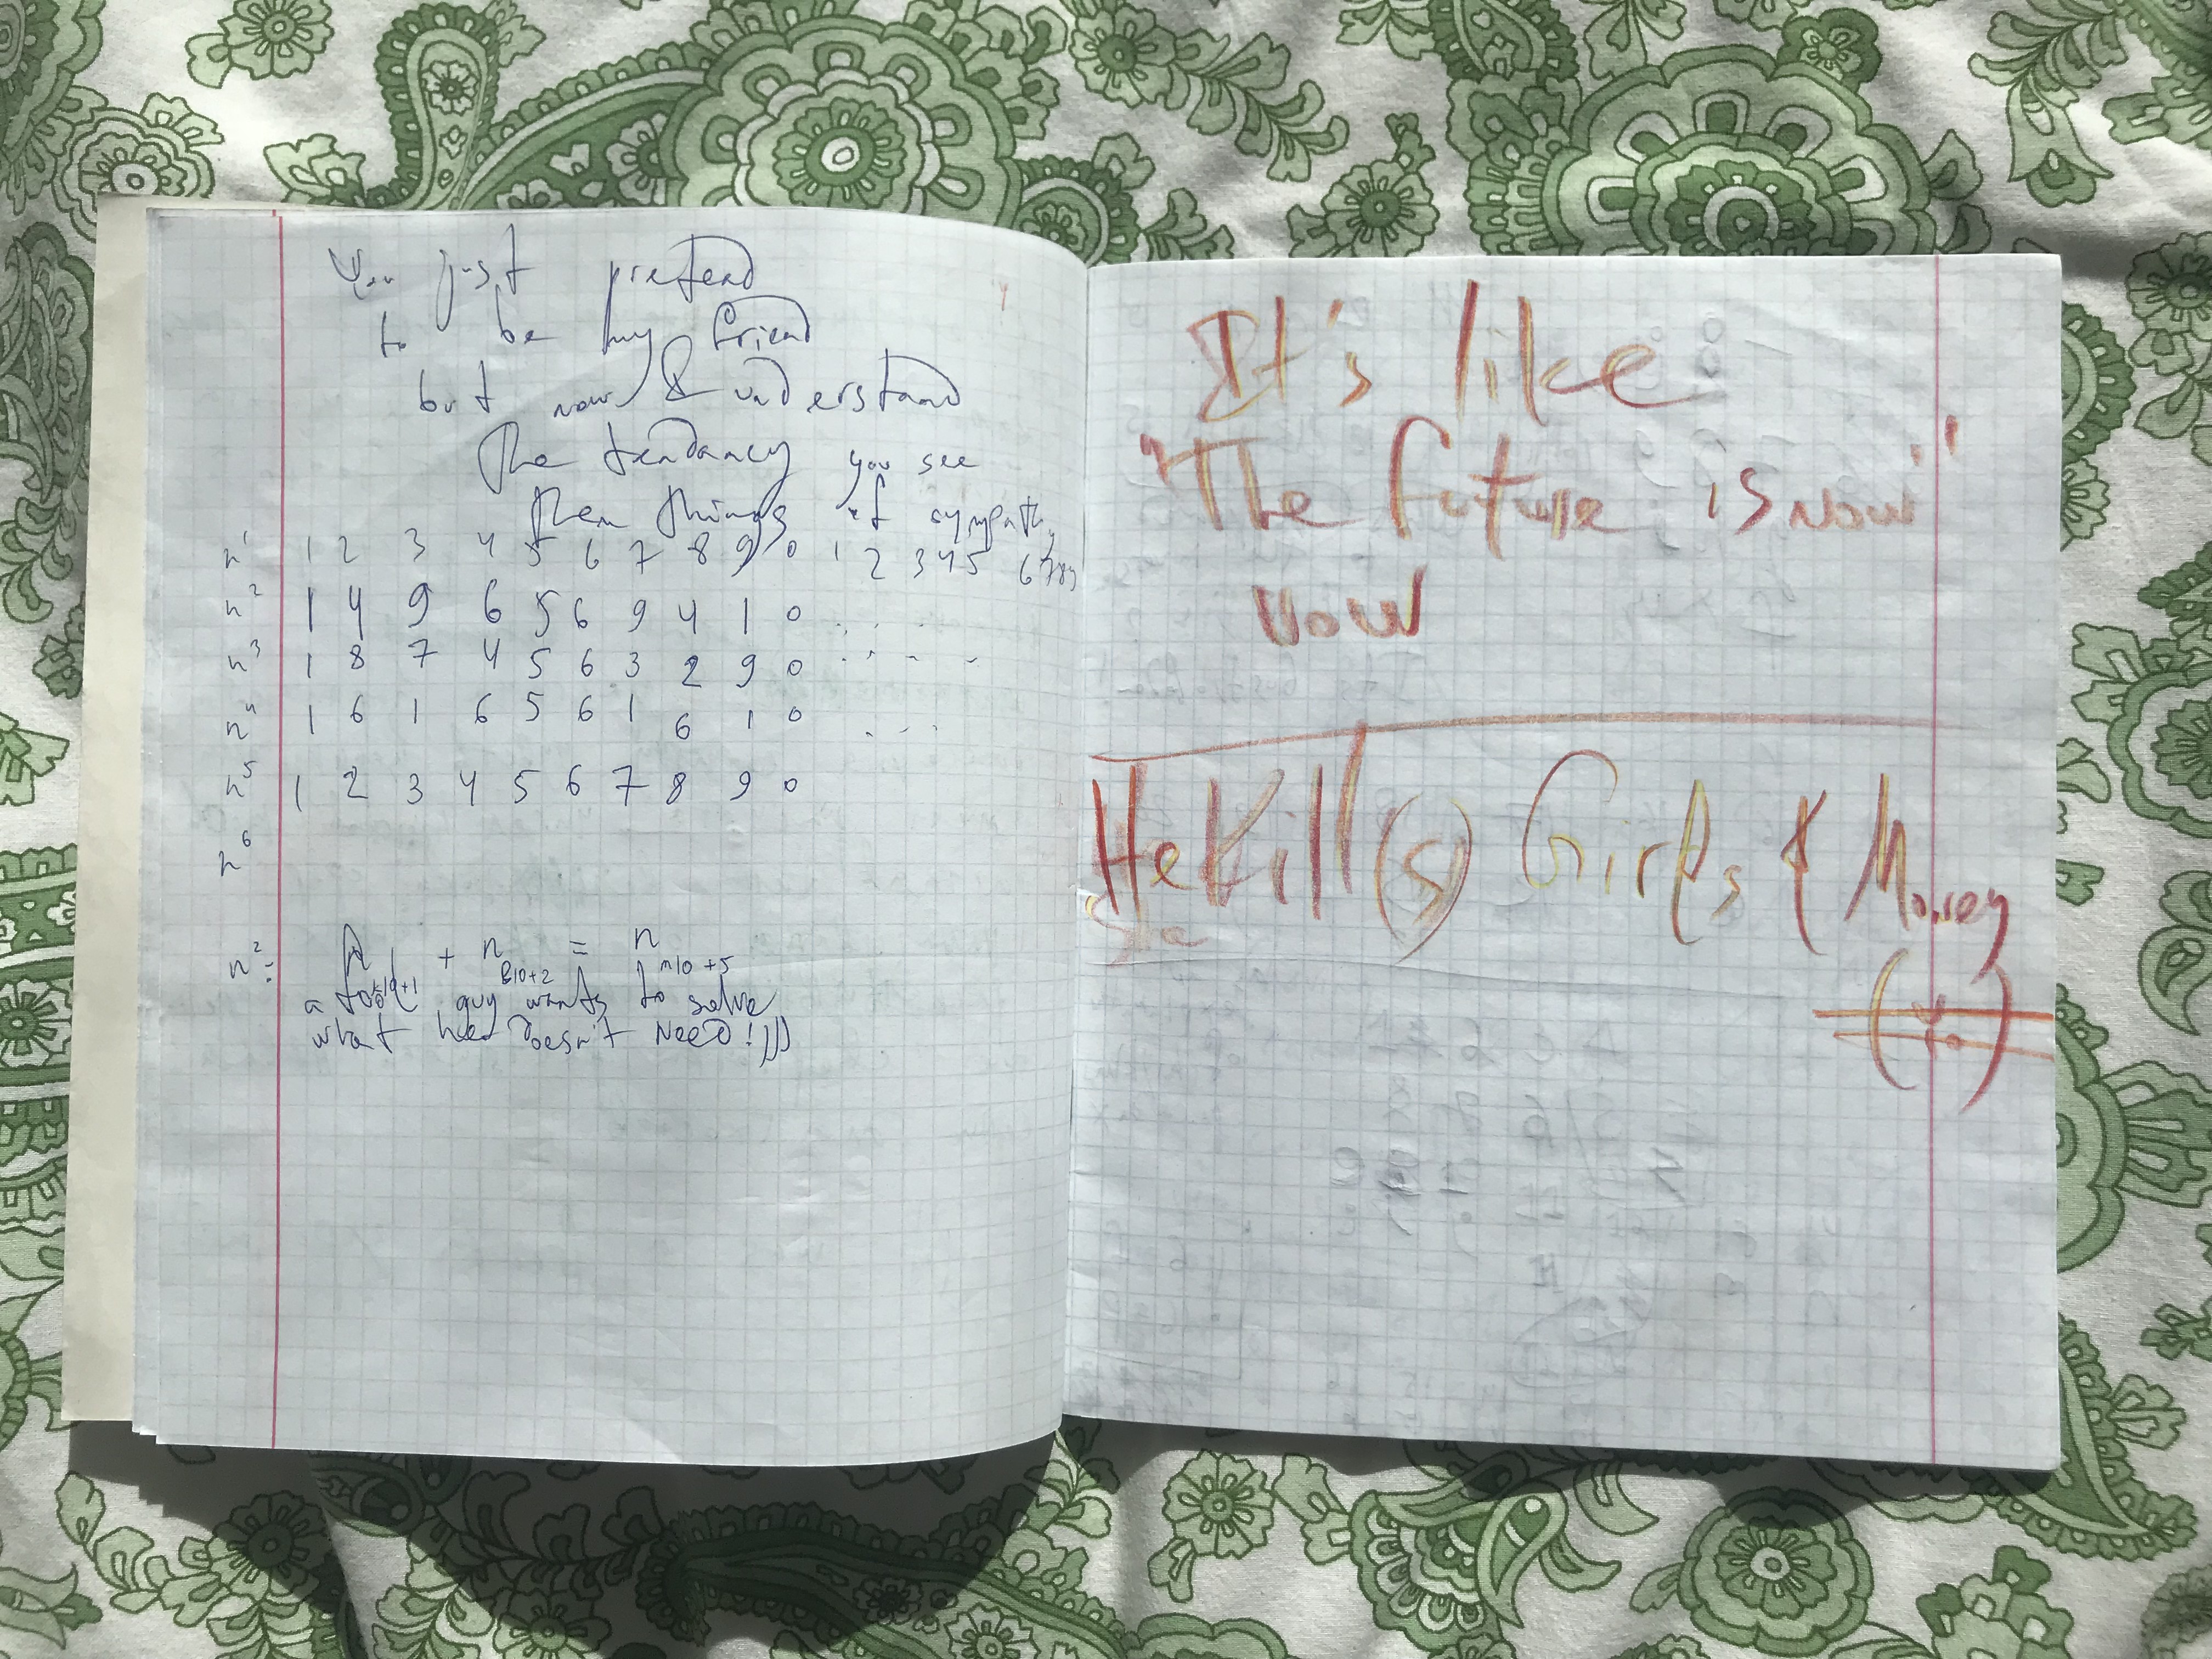 You just pretend
to be my friend
but now I understand
The tendancy you see
then things
n¹ 1 2 3 4 5 6 7 8 9 0 1 2 3 4 5 6
n² 1 4 9 6 5 6 9 4 1 0 . . .
n³ 1 8 7 4 5 6 3 2 9 0 . . .
n⁴ 1 6 1 6 5 6 1 6 1 0 . . .
n⁵ 1 2 3 4 5 6 7 8 9 0
n⁶
n²:
a guy wants to solve
what He Doesn't NEED!)))
It's like
"The future is now"
now
He Kill(s) Girls & Money